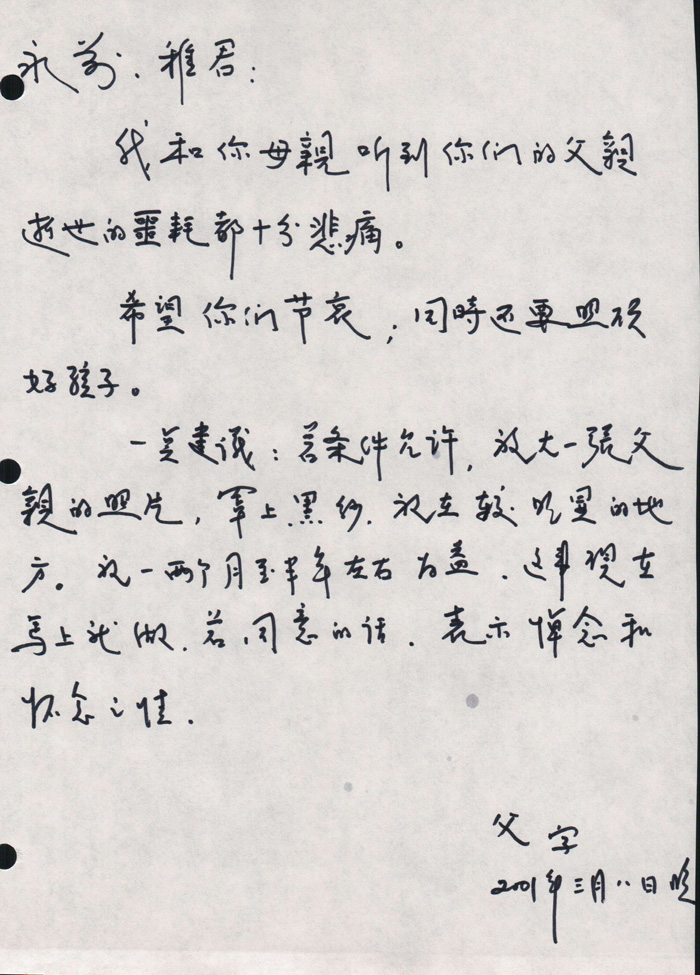 永芳、稚君：
我和你母親听到你们的父親
逝世的噩耗都十分悲痛。
希望你们节哀，同時还要照顾
好孩子。
一点建议：若条件允许，放大一張父
親的照片，罩上黑纱，放在较明显的地
方。放一两个月至半年左右为益，这事现在
马上就做，若同意的话，表示悼念和
怀念之情.
父字
2001年三月八日晚